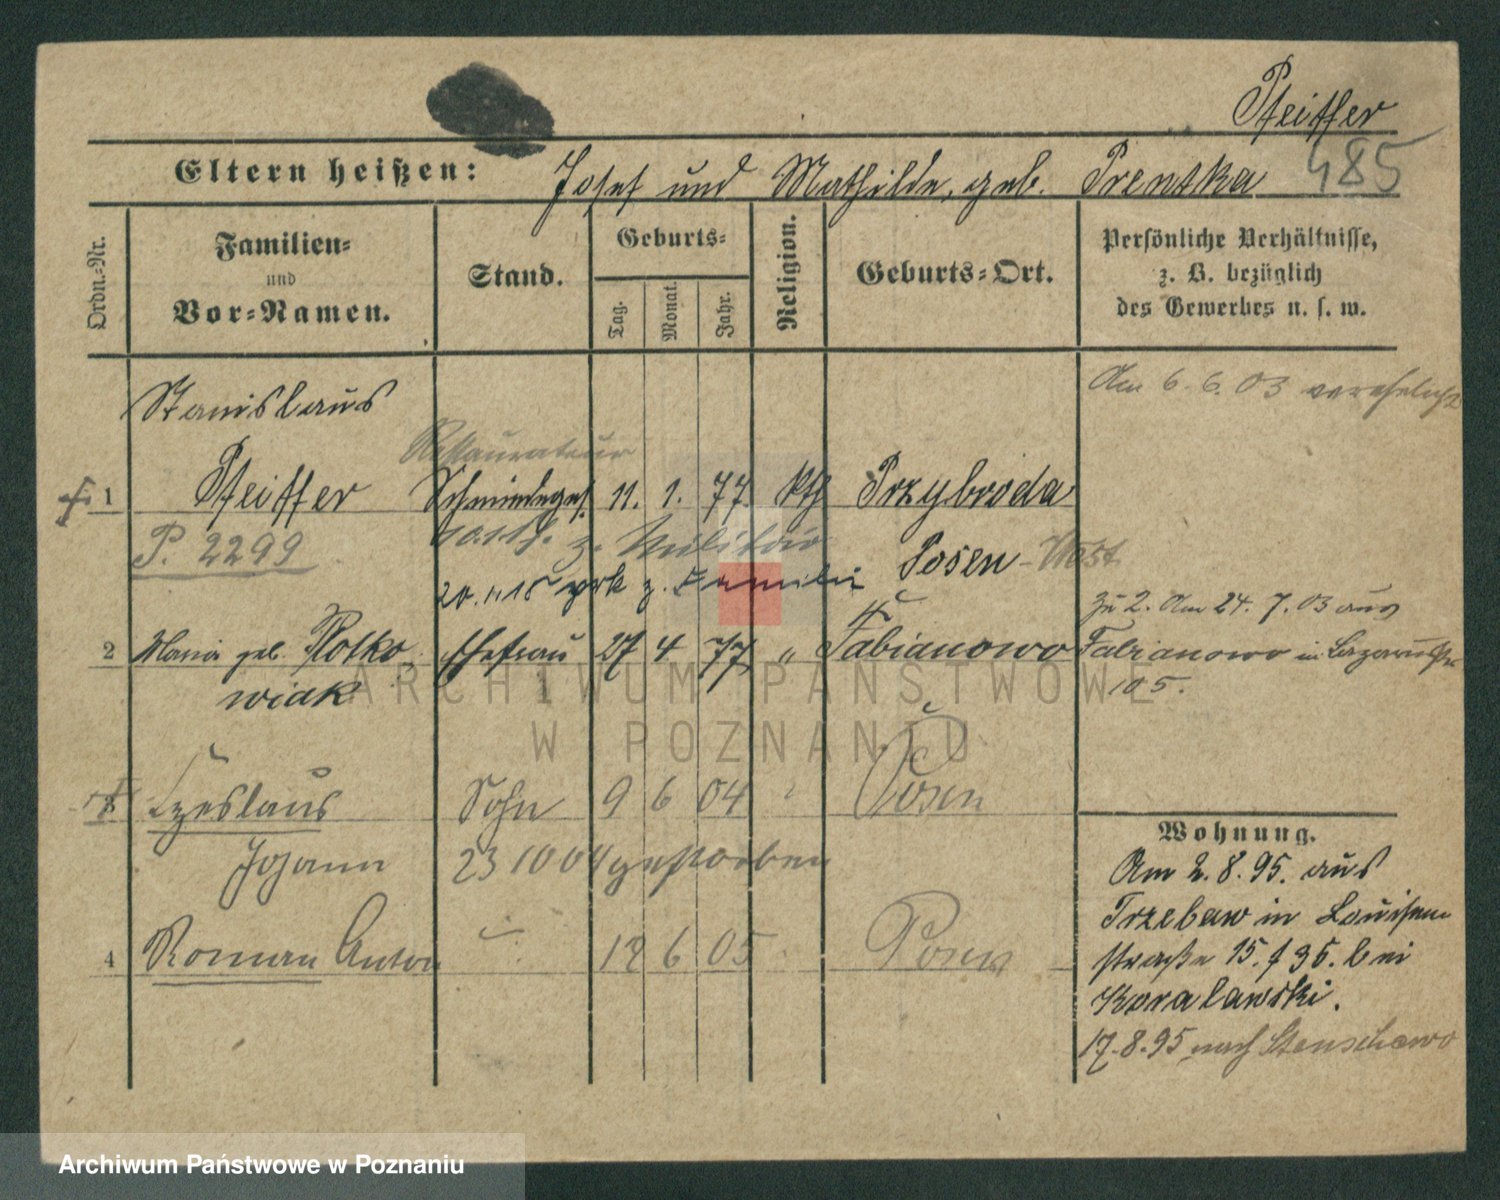 Pfeiffer
Eltern heißen: Josef und Mathilde, geb. Prenska
485
Ordn.-Nr.
Familien-
und
Vor-Namen.
Stand.
Geburts-
Tag. Monat. Jahr.
Religion.
Geburts-Ort.
Persönliche Verhältnisse,
z. B. bezüglich
des Gewerbes u. s. w.
Am 6. 6. 03 verehelicht
Stanislaus
Restaurateur
1 Pfeiffer Schmiedeges. 11. 1. 77. kth Przybroda
P. 2299
z. Militär
Posen - West
20. 11 18 zrk z. Familie
Zu 2. Am 24. 7. 03 aus
2 Maria geb. Plotko Ehefrau 27 4 77 " Fabianowo
wiak
Fabianowo in
105.
3 Czeslaus Sohn 9 6 04 Posen
Johann 23 10 04 gestorben
4 Roman Anton 12 6 05 Posen
Wohnung.
Am 2. 8. 95. aus
Trzebaw in Louisen
straße 15. f 96. bei
Koralewski.
17. 8. 95 nach Stenschewo
ARCHIWUM PAŃSTWOWE
W POZNANIU
Archiwum Państwowe w Poznaniu